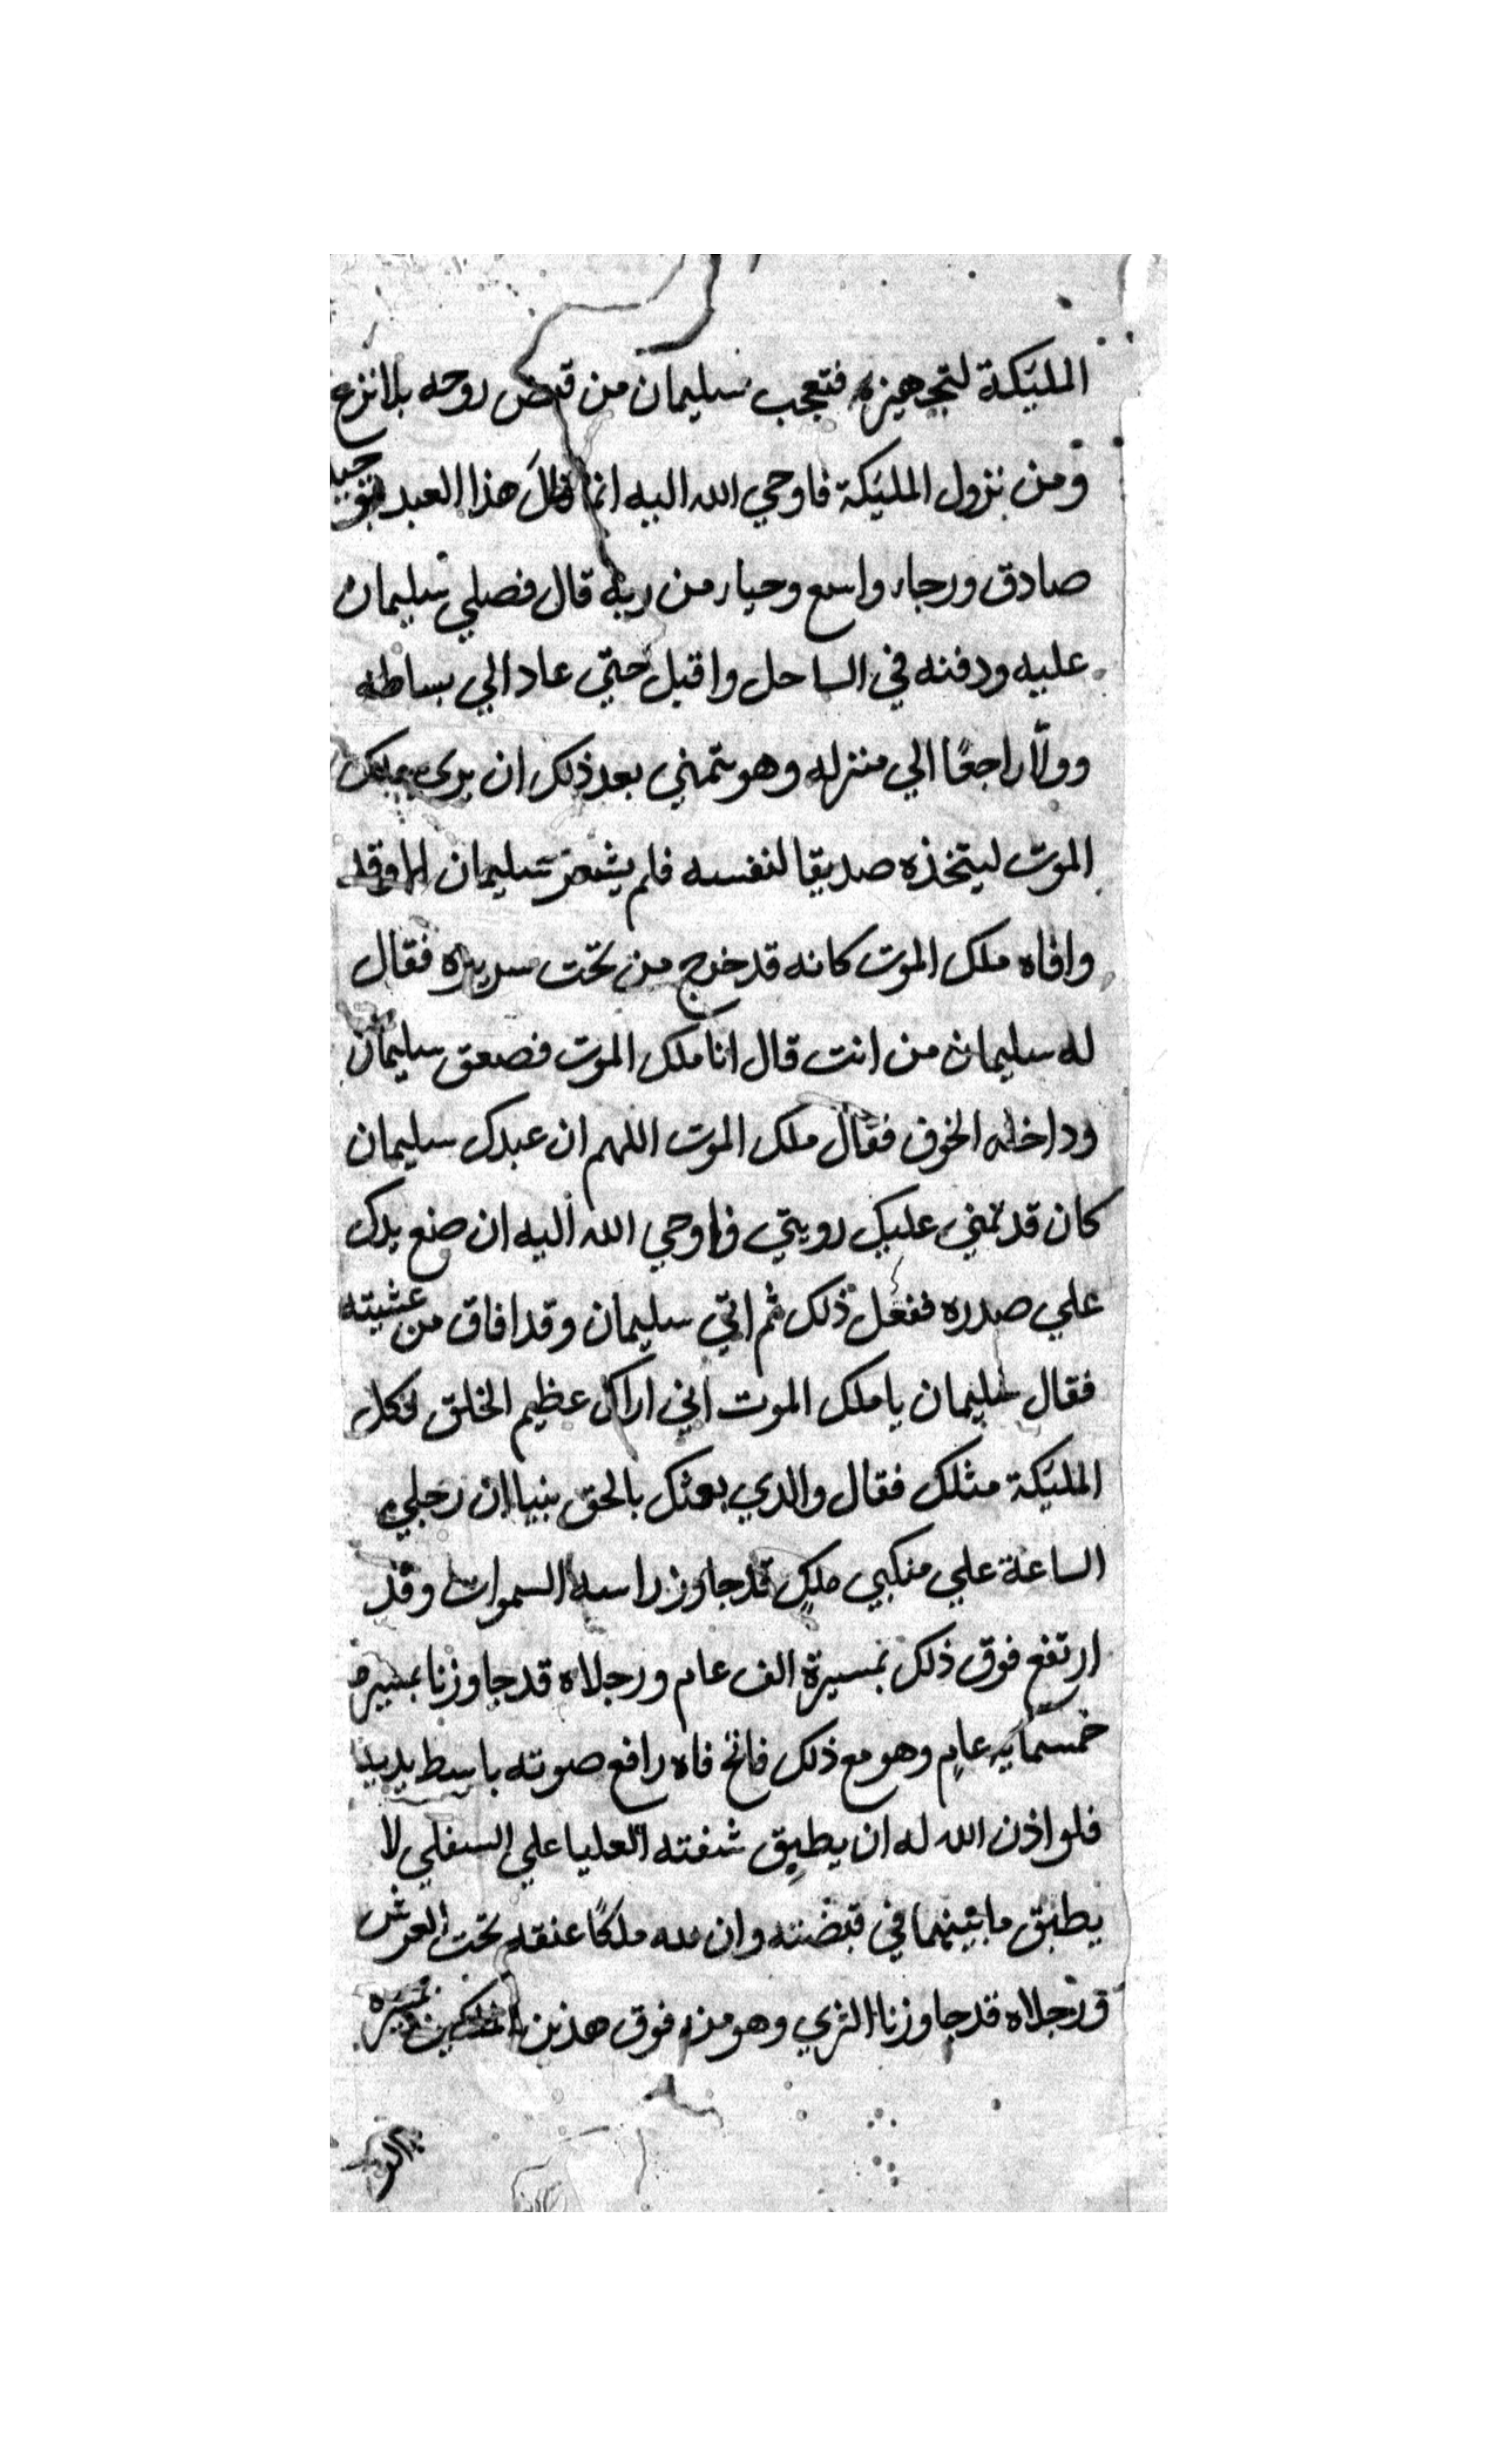 المليكة لتجهيزه فتعجب سليمان من قبض روحه بلا نزع
ومن نزول المليكة فاوحي الله اليه انما نال هذا العبد
صادق ورجاء واسع وحياء من ربه قال فصلي سليمان
عليه ودفنه في الساحل واقبل حتي عاد الي بساطه
وولا راجعًا الي منزله وهو يتمني بعد ذلك ان يري ملك
الموت ليتخذه صديقا لنفسه فلم يشعر سليمان الا وقد
وافاه ملك الموت كانه قد خرج من تحت سريره فقال
له سليمان من انت قال انا ملك الموت فصعق سليمان
وداخله الخوف فقال ملك الموت اللهم ان عبدك سليمان
كان قد تمني عليك رويتي فاوحي الله اليه ان ضع يدك
علي صدره ففعل ذلك ثم اتي سليمان وقد افاق من غشيته
فقال سليمان يا ملك الموت اني اراك عظيم الخلق فكل
المليكة مثلك فقال والذي بعثك بالحق نبيا ان رجلي
الساعة علي منكبي ملك قد جاوز راسه السموات وقد
ارتفع فوق ذلك بمسيرة الف عام ورجلاه قد جاوزتا بمسيرة
خمسمايه عام وهو مع ذلك فاتح فاه رافع صوته باسط يديه
فلو اذن الله له ان يطبق شفته العليا علي السفلي لا
يطبق ما بينهما في قبضته وان لله ملكًا عنقه تحت العرش
ورجلاه قد جاوزتا الثري وهو من فوق هذين الملكين بمسيرة